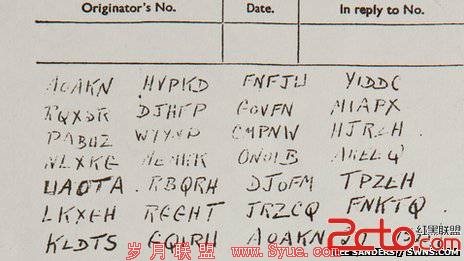 Originator's No. Date. In reply to No.
AOAKN HVPKD FNFJU YIDDC
RQXSR DJHFP GOVFN MIAPX
PABUZ WYYNP CMPNW HJRZH
NLXKG MEMKK ONOIB AKEEQ
UAOTA RBQRH DJOFM TPZEH
LKXGH RGGHT JRZCQ FNKTQ
KLDTS GQIRU AOAKN
岁月联盟 2cto.com 红黑联盟
SANDERS//SWNS.COM